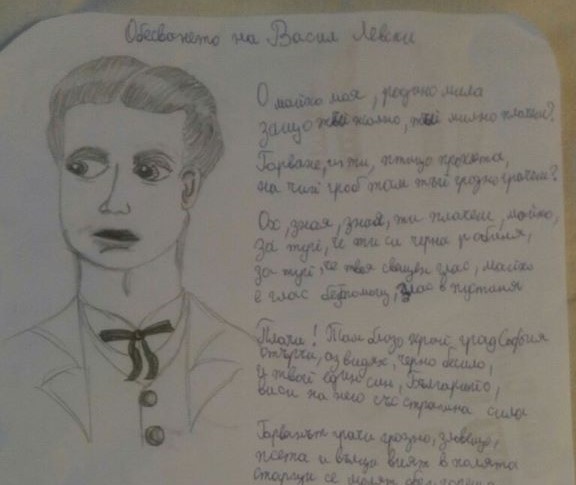 Обесването на Васил Левски
О майко моя, родино мила
защо тъй жално, тъй милно плачеш?
Гарване, и ти, птицо проклета,
на чий гроб там тъй грозно грачеш?
Ох, зная, зная, ти плачеш, майко,
за туй, че ти си черна робиня,
за туй, че твоя свещен глас, майко
е глас без помощ, глас в пустиня
Плачи! Там близо край град София
стърчи, аз видях, черно бесило,
и твой един син, Българийо,
виси на него със страшна сила
Гарванът грачи грозно, зловещо,
псета и вълци вият в полята
старци се молят